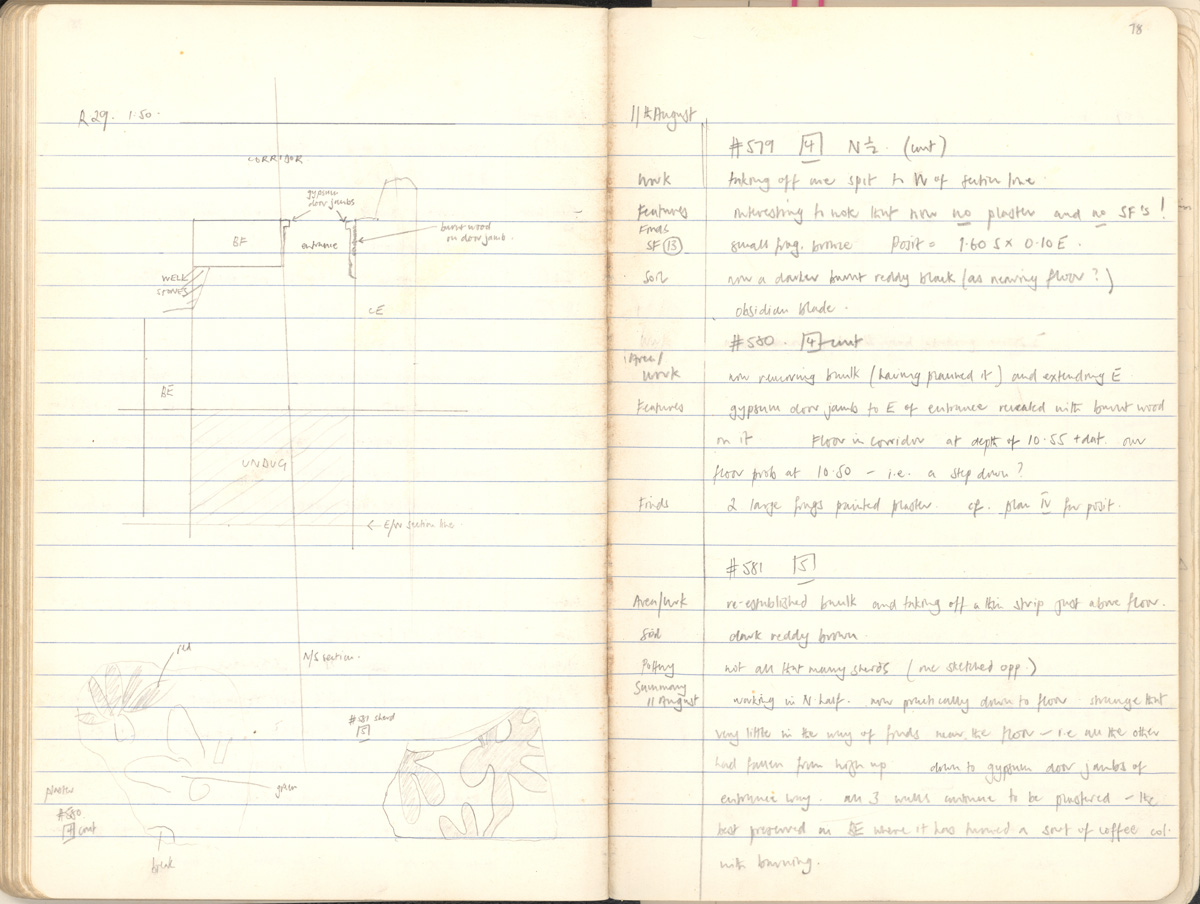 R 29. 1.50.
CORRIDOR
gypsum
door jambs
BF
entrance
burnt wood
on door jamb.
WELL
STONES
CE
BE
UNDUG
← E/W section line.
N/S section.
red
#581 sherd
[5]
green
plaster
#580
[4] cont
break
78
11th August
#579 [4] N ½. (cont)
Work taking off one spit to N of section line.
Features interesting to note that now no plaster and no SF's!
Finds
SF (13) small frag. bronze Posit = 1.60 S x 0.10 E.
Soil now a darker burnt reddy black (as nearing floor?)
obsidian blade.
#580. [4] cont
Area/
Work now removing baulk (having planned it) and extending E
Features gypsum door jamb to E of entrance revealed with burnt wood
on it Floor in corridor at depth of 10.55 + dat. our
floor prob at 10.50 - i.e. a step down?
Finds 2 large frags painted plaster. cf. plan IV for posit.
#581 [5]
Area/Work re-established baulk and taking off a thin strip just above floor.
Soil dark reddy brown.
Pottery not all that many sherds (one sketched opp.)
Summary
11 August working in N. half. now practically down to floor strange that
very little in the way of finds near the floor - i.e. all the other
had fallen from high up down to gypsum door jambs of
entrance way. all 3 walls continue to be plastered - the
best preserved on where it has turned a sort of coffee col.
with burning.